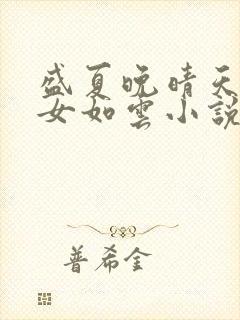 盛夏晚晴天
女如雲小說
普希金